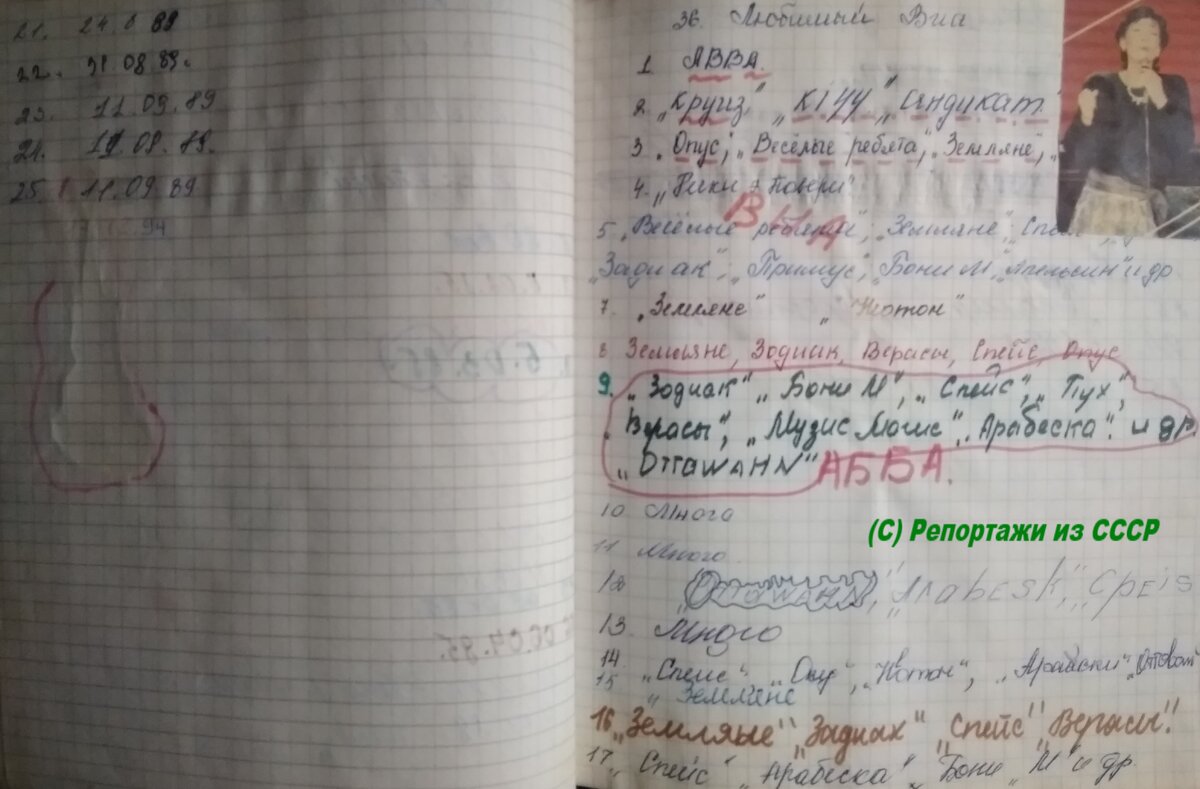 21. 24.8 89
22. 31.08 89.
23. 11.09.89
24. 19.09.89.
25. 11.09 89
94
36. Любимый Виа
1. АВВА.
2. „Круиз" „К144" „Синдикат."
3. „Опус", „Весёлые ребята", „Земляне", „
4. „Пики
ВИА
5 „Весёлые ребята", „Земляне"
„Задиак", „Примус", „Бони М", „Апельсин" и др
7. „Земляне" „Нотон"
8 Земляне, Зодиак, Верасы, Спейс, Опус
9. „Зодиак" „Бони М", „Спейс", „Пух",
„Верасы", „Музис Могис" „Арабеска". и др.
„OTTAWAHN" АББА.
10 Многа
(С) Репортажи из СССР
11 Много.
12 „OTTAWAHN", „Arabesk", „Cpeis
13 Много
14. „Спейс" „Опу", „Нотон", „Арабески"
15 „Земляне
16 „Земляые" „Задиак" „Спейс" „Верасы".
17 „Спейс" „Арабеска" „Бони „М" и др